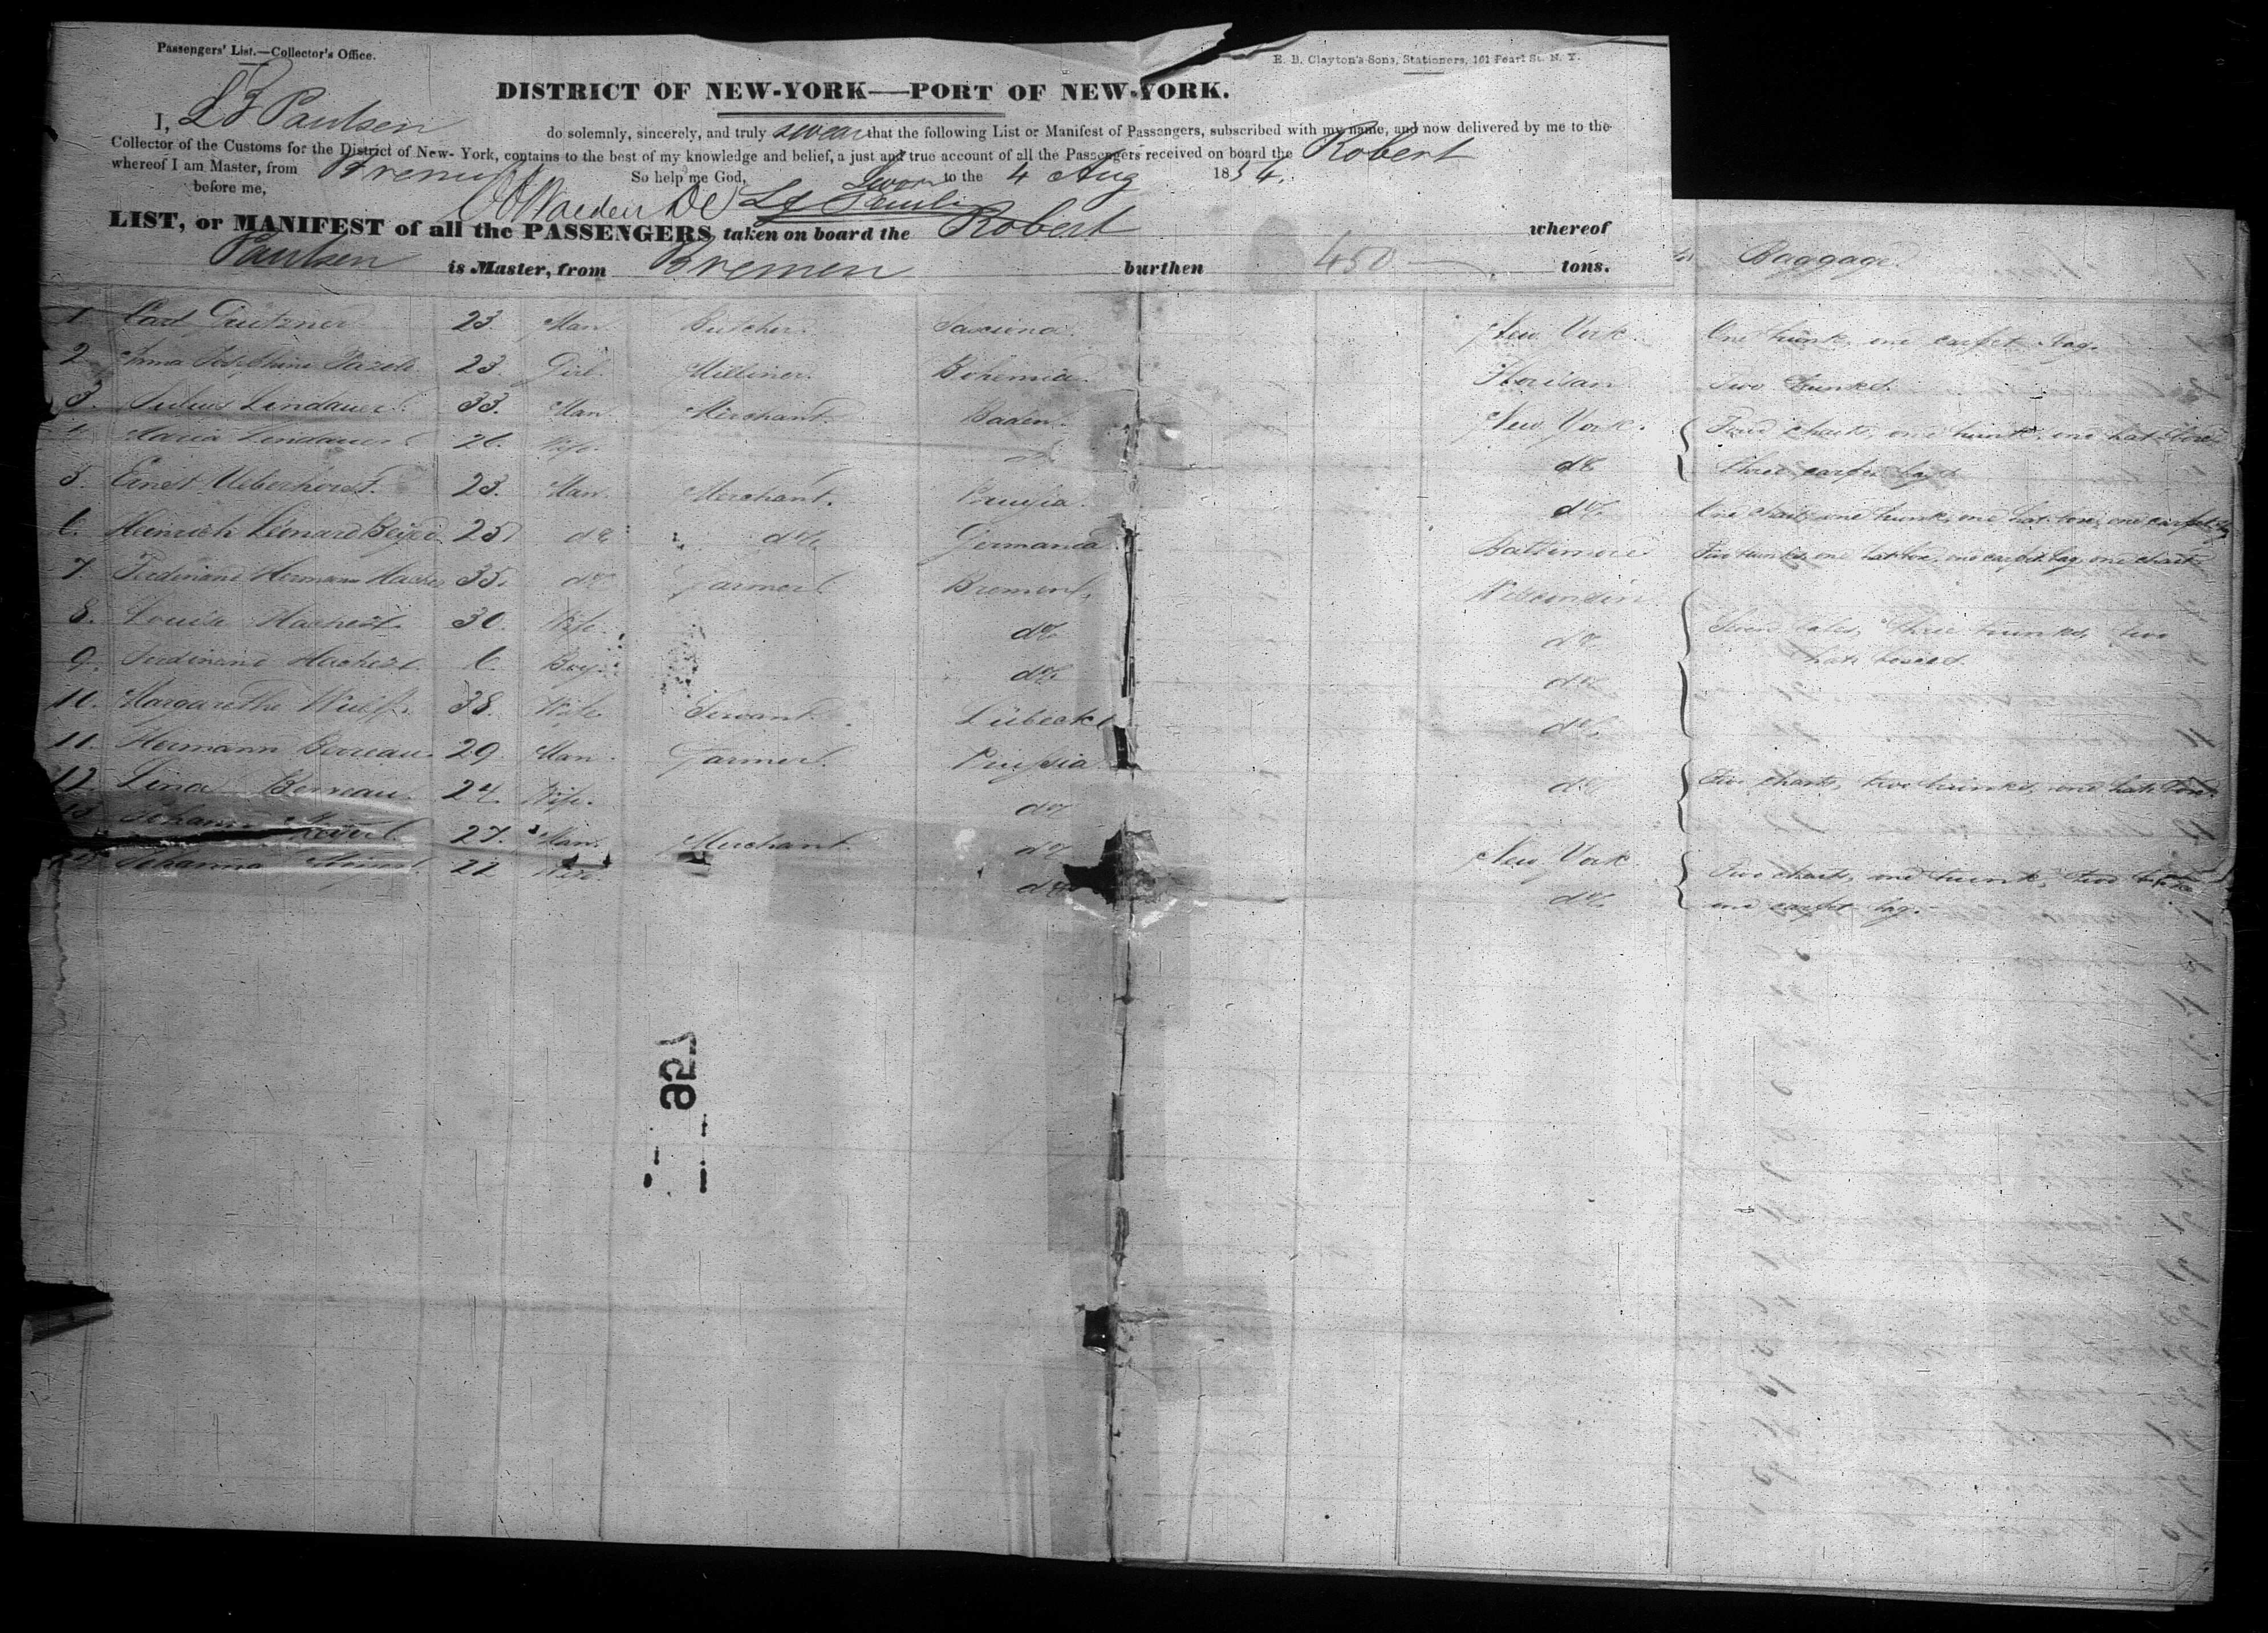 Passengers' List.—Collector's Office.
E. B. Clayton's Sons, Stationers, 161 Pearl St. N. Y.
DISTRICT OF NEW-YORK—PORT OF NEW-YORK.
I, Paulsen do solemnly, sincerely, and truly swear that the following List or Manifest of Passengers, subscribed with my name, and now delivered by me to the
Collector of the Customs for the District of New-York, contains to the best of my knowledge and belief, a just and true account of all the Passengers received on board the Robert
whereof I am Master, from Bremen So help me God, Sworn to the 4 Aug 1854.
before me,
LIST, or MANIFEST of all the PASSENGERS taken on board the Robert whereof
Paulsen is Master, from Bremen burthen 450 tons.
Baggage.
1 Carl 23. Man. Butcher. New York. One trunk, one carpet bag.
2 Anna Josephine 23. Girl. Milliner. Bohemia. Two trunks.
3. Julius Lindauer. 33. Man. Merchant. Baden. New York. chests, one trunk, one hat box
Maria Lindauer 26. Wife. do do three carpet bags
5. Ernst Ueberhorst. 23. Man. Merchant. Prussia. do One chest, one trunk, one hat box, one carpet bag
6. Heinrich Leonard 25 do do Germania Baltimore trunks, one hat box, one carpet bag, one chest
7. Ferdinand Hermann 35. do Farmer Bremen. Wisconsin
8. Louise 30. Wife. do do three trunks, two
9. Ferdinand 6. Boy. do do hat boxes.
10. Margarethe 38. Wife Servant. Lübeck do
11. Hermann Berreau. 29. Man. Farmer. Prussia do chests, two trunks, one hat box
12. Lina Berreau. 24. Wife. do
13 Johann 27. Man. Merchant. do New York. Two chests, one trunk, two
Johanna 22 Wife. do do one carpet bag.
927